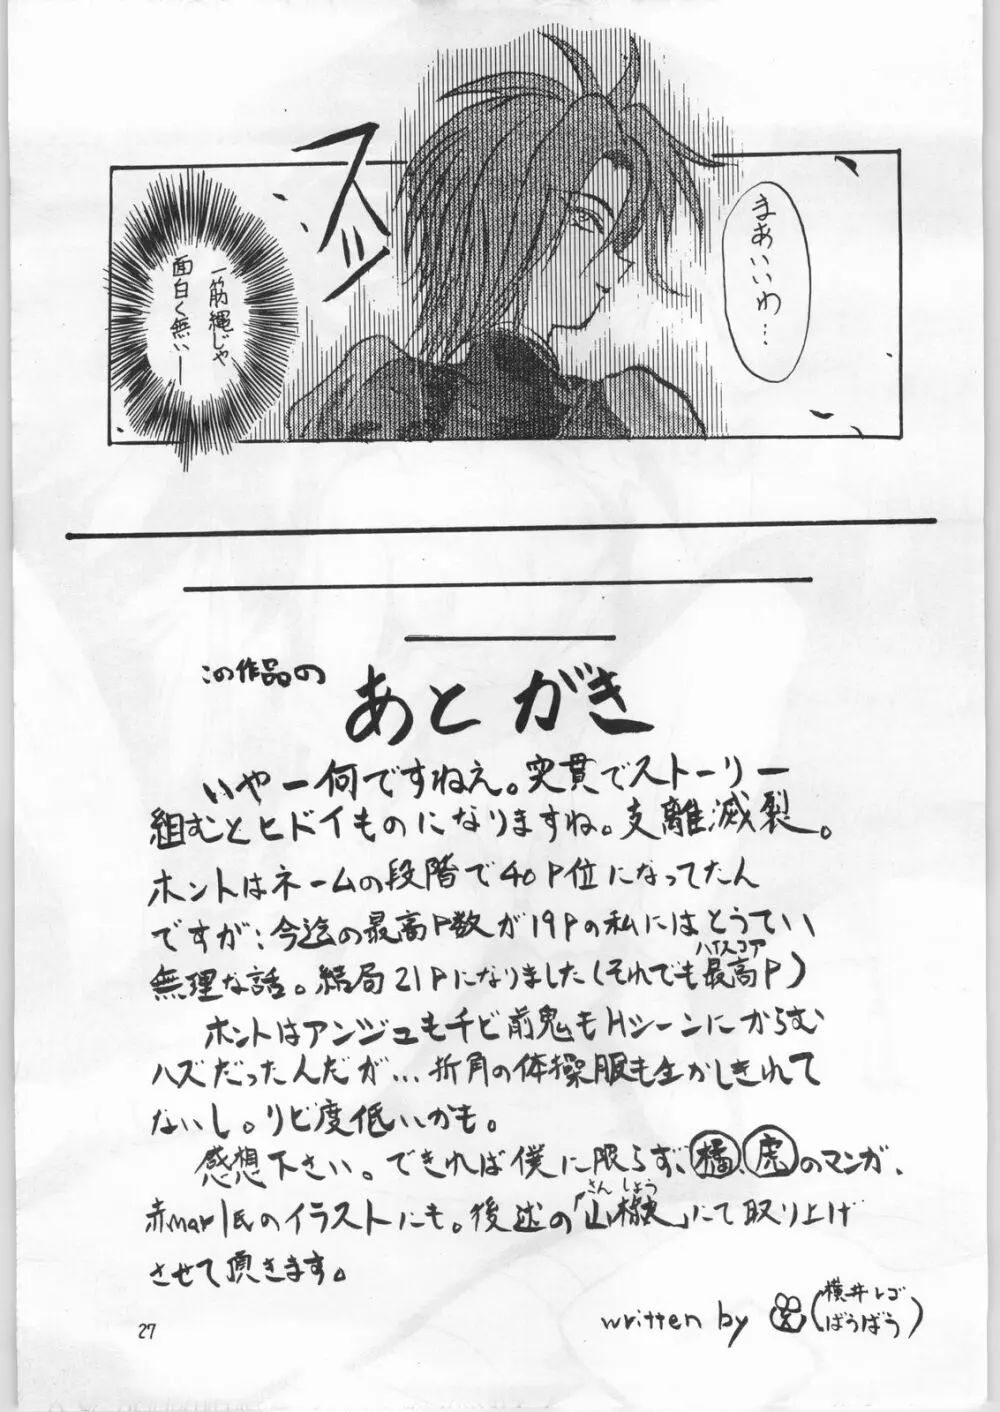 まあいいわ…
スッ
一筋縄じゃ
面白く無い―
この作品の
あとがき
いやー何ですねえ。突貫でストーリー
組むとヒドイものになりますね。支離滅裂。
ホントはネームの段階で40P位になってたん
ですが、今迄の最高P数が19Pの私にはとうてい
無理な話。結局21Pになりました(それでも最高P)
ハイスコア
ホントはアンジュもチビ前鬼もHシーンにからむ
ハズだったんだが…折角の体操服も生かしきれて
ないし。リビ度低いかも。
感想下さい。できれば僕に限らず、橘、虎のマンガ、
さんしょう
赤mar氏のイラストにも。後述の「山椒」にて取り上げ
させて頂きます。
written by (横井レゴ
ばうばう)
27